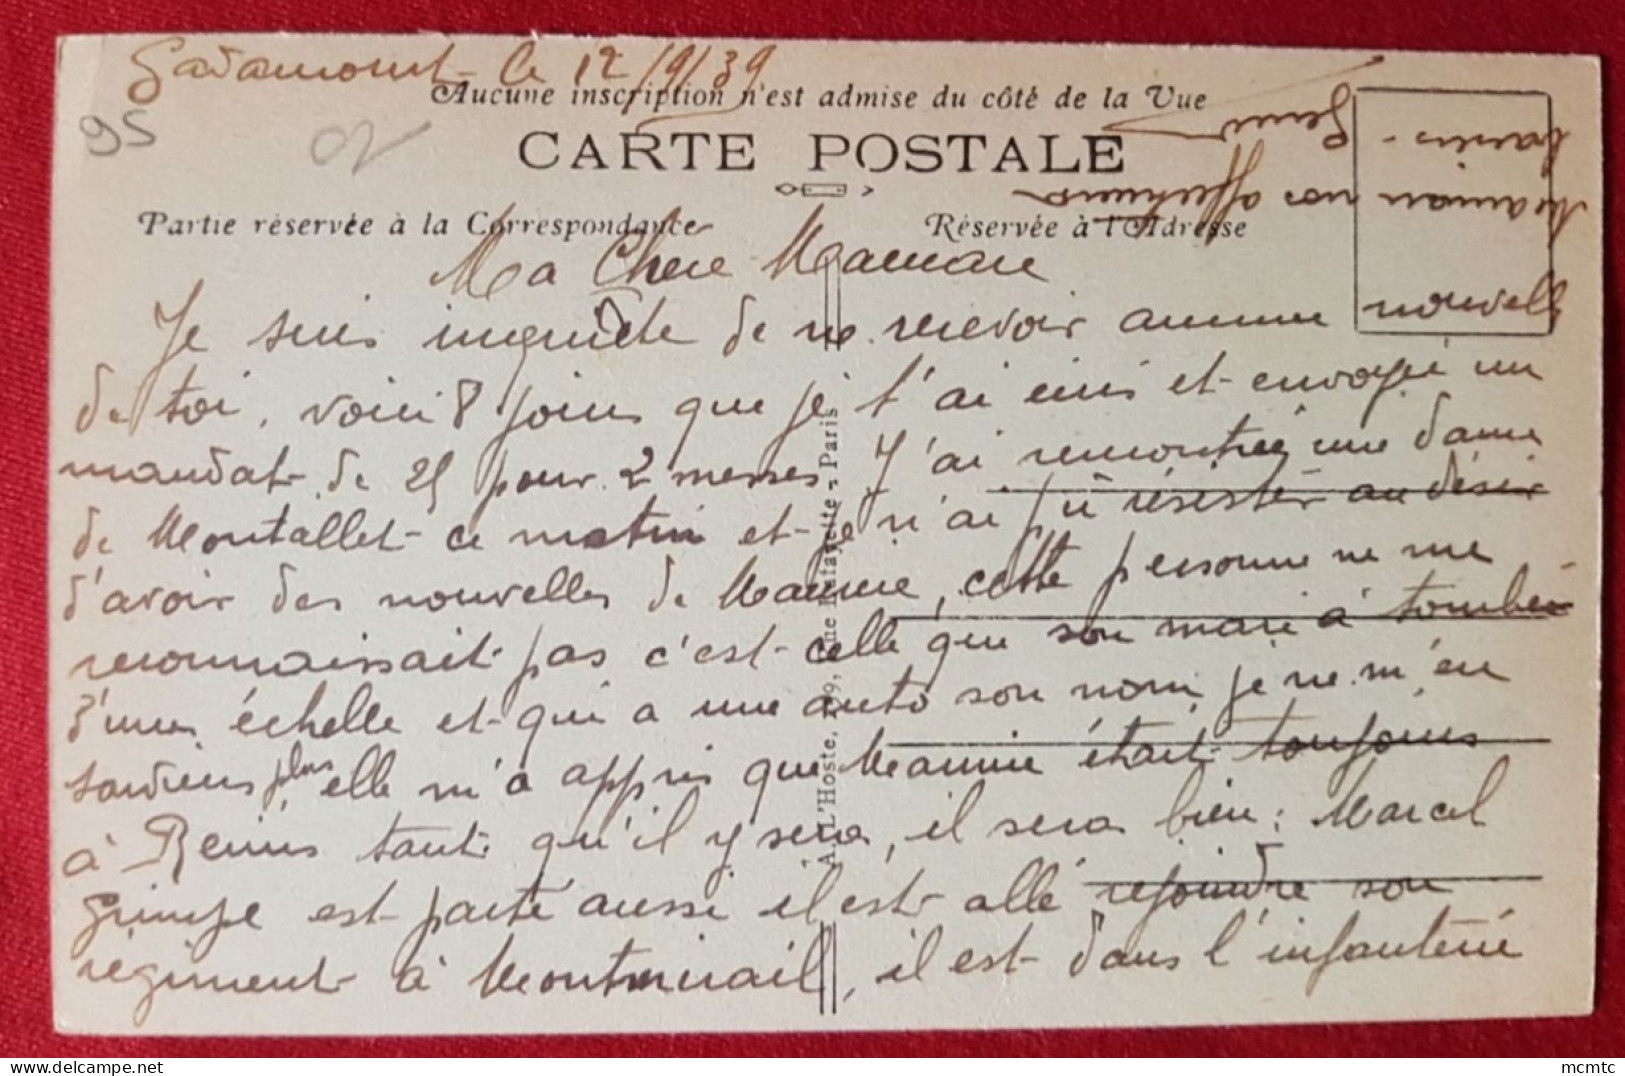 Gadamont le 12/9/39
95
Aucune inscription n'est admise du côté de la Vue
CARTE POSTALE
Partie réservée à la Correspondance
Réservée à l'Adresse
Ma Chere Maman
Je suis inquiète de ne recevoir aucune nouvelle
de toi, voici 8 jours que je t'ai écris et envoyé un
mandat de 25 pour 2 messes. J'ai rencontrée une dame
de Montallet ce matin et je n'ai pû résister au désir
d'avoir des nouvelles de Maurice, cette personne ne me
reconnaissait pas c'est celle que son mari à tombé
d'une échelle et qui a une auto son nom je ne m'en
souviens plus elle m'a appris que Maurice était toujours
à Reims tant qu'il y sera, il sera bien : Marcel
Grimpe est parti aussi il est allé rejoindre son
régiment à Montmirail, il est dans l'infanterie
Maman nos affectueux
baisers -
A. L'Hoste, rue Lafayette - Paris
mcmtc